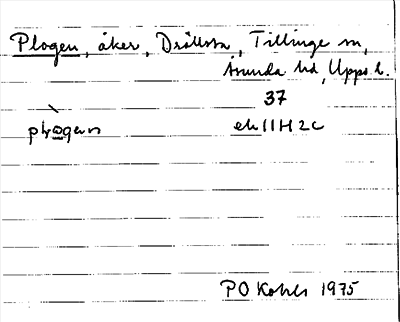 Plogen, åker, Drällsta, Tillinge sn,
Åsunda hd, Upps. l.
37
plogen
ek 11H 2c
PO Kohls 1975